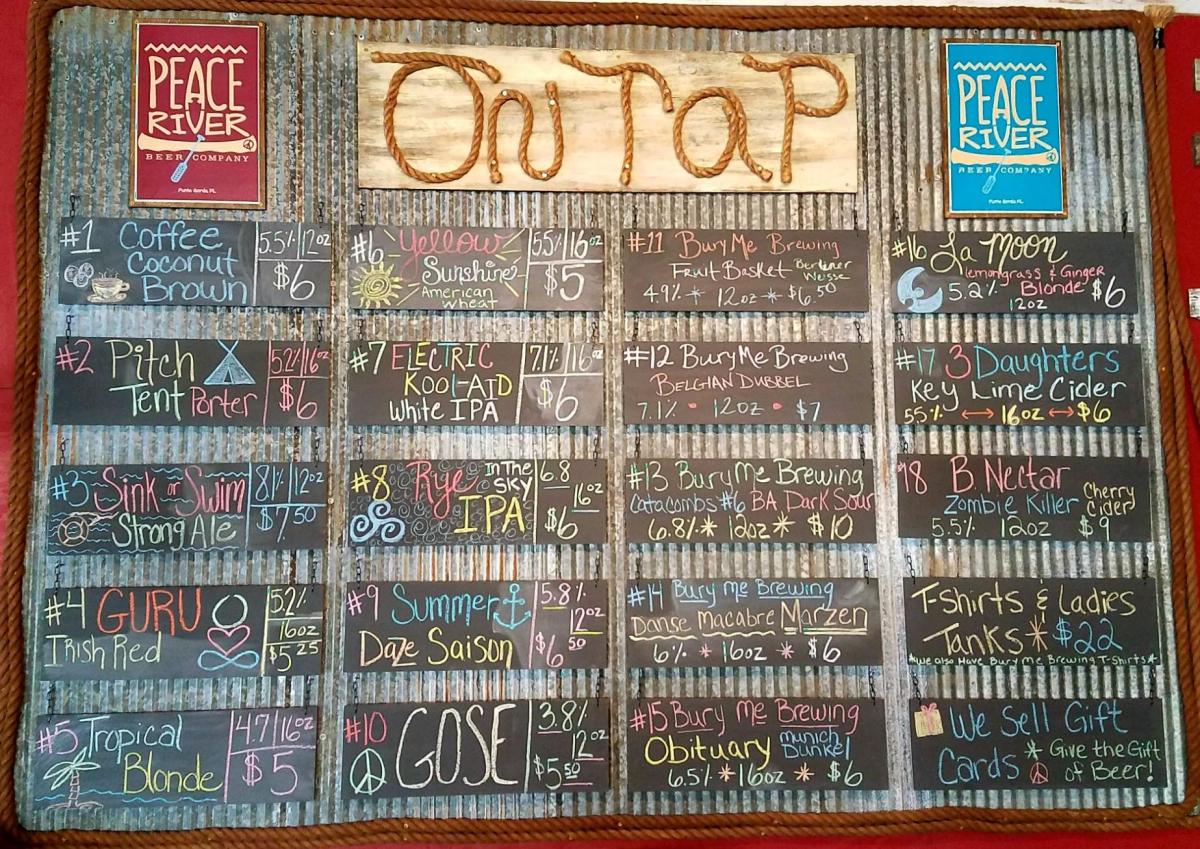 PEACE
RIVER
BEER COMPANY
Punta Gorda FL
On TaP
PEACE
RIVER
BEER COMPANY
Punta Gorda FL
#1 Coffee
Coconut
Brown
5.5% 12oz
$6
#2 Pitch
Tent Porter
5.2% 16oz
$6
#3 Sink or Swim
Strong Ale
8.1% 12oz
$7.50
#4 GURU
Irish Red
5.2%
16oz
$5.25
#5 Tropical
Blonde
4.7 16oz
$5
#6 Yellow
Sunshine
American
Wheat
5.5% 16oz
$5
#7 ELECTRIC
KOOL-AID
White IPA
7.1% 16oz
$6
#8 Rye IN THE
SKY
IPA
6.8
16oz
$6
#9 Summer
Daze Saison
5.8%
12oz
$6.50
#10 GOSE
3.8%
12oz
$5.50
#11 Bury Me Brewing
Fruit Basket Berliner
Weisse
4.9% * 12oz * $6.50
#12 Bury Me Brewing
BELGIAN DUBBEL
7.1% • 12oz • $7
#13 Bury Me Brewing
Catacombs #6 BA Dark Sour
6.8% * 12oz * $10
#14 Bury Me Brewing
Danse Macabre Marzen
6% * 16oz * $6
#15 Bury Me Brewing
Obituary Munich
Dunkel
6.5% * 16oz * $6
#16 La Moon
Lemongrass & Ginger
Blonde
5.2% $6
12oz
#17 3 Daughters
Key Lime Cider
5.5% ↔ 16oz ↔ $6
#18 B. Nectar
Zombie Killer Cherry
Cider
5.5% 12oz $9
T-Shirts & Ladies
Tanks * $22
*We also Have Bury Me Brewing T-Shirts*
We Sell Gift
Cards * Give the Gift
of Beer!